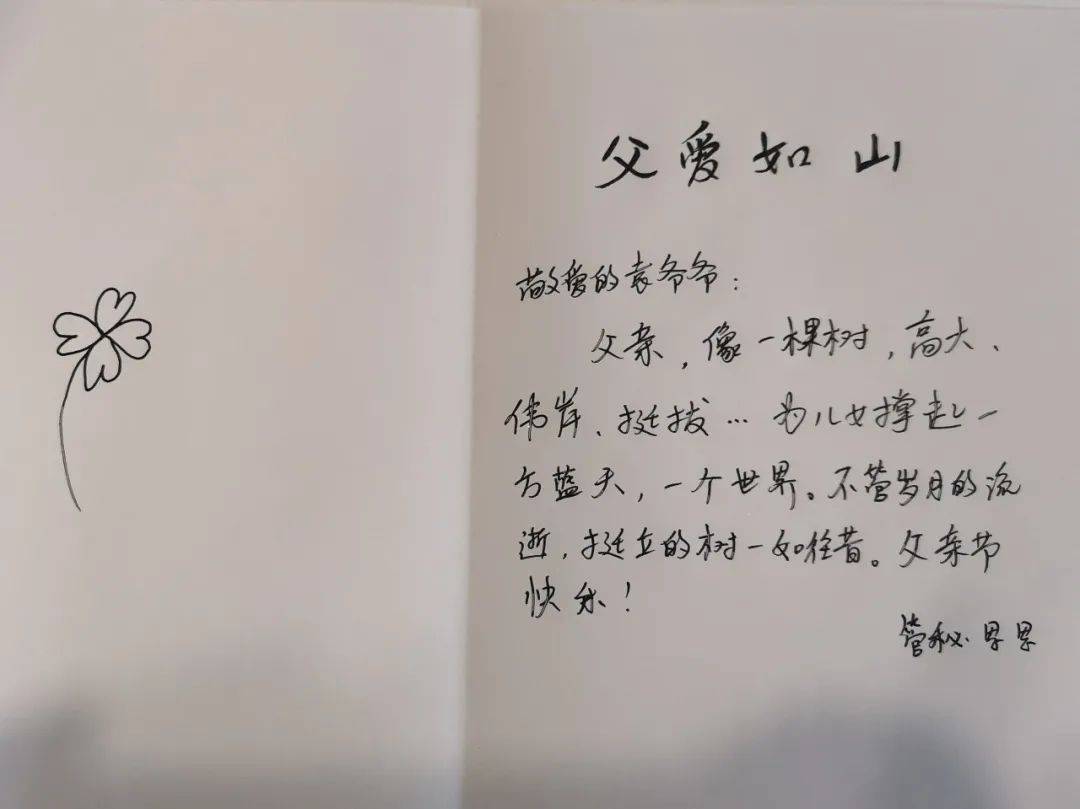 父爱如山
敬爱的袁爷爷：
父亲，像一棵树，高大、
伟岸、挺拔…为儿女撑起一
方蓝天，一个世界。不管岁月的流
逝，挺立的树一如往昔。父亲节
快乐！
管秘 思思